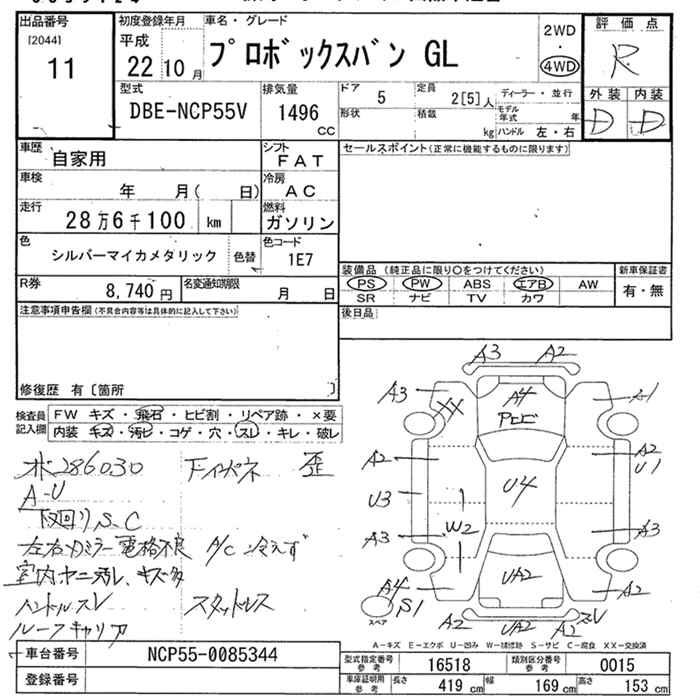 出品番号 初度登録年月 車名・グレード 評価点
[2044] 11
平成 22 10月
プロボックスバン GL
2WD・4WD
R
型式 DBE-NCP55V
排気量 1496 cc
ドア 5
定員 2[5]人
ディーラー・並行
形状
積載 kg
モデル年式 年
ハンドル 左・右
外装 内装
D D
車歴 自家用
シフト FAT
車検 年 月( 日)
冷房 AC
走行 28万6千100 km
燃料 ガソリン
色 シルバーマイカメタリック 色替
色コード 1E7
R券 8,740円
名変通知期限 月 日
セールスポイント(正常に機能するものに限ります)
装備品 (純正品に限り○をつけてください) 新車保証書
PS PW ABS エアB AW 有・無
SR ナビ TV カワ
後日品
注意事項申告欄(不具合内容等は具体的に記入して下さい)
修復歴 有〔箇所 〕
検査員記入欄
FW キズ・飛石・ヒビ割・リペア跡・×要
内装 キズ・汚ビ・コゲ・穴・スレ・キレ・破レ
286030 下 パネ 歪
A-U
下回りS.C
左右 ミラー電格不良 A/C 冷えず
室内ヤニ汚レ、キズ多
ハンドルスレ スタットレス
ルーフキャリア
A3 A2
A3 XX A4 A1
Pヒビ
A2 A2 U1
U3 U4
W2
A3 A3
A4 UA2 A2
S1 A2 UA2
スペア
A-キズ E-エクボ U-凹み W-補修跡 S-サビ C-腐食 XX-交換済
車台番号 NCP55-0085344
登録番号
型式指定番号 参考 16518 類別区分番号 参考 0015
車庫証明用 参考 長さ 419cm 幅 169cm 高さ 153cm